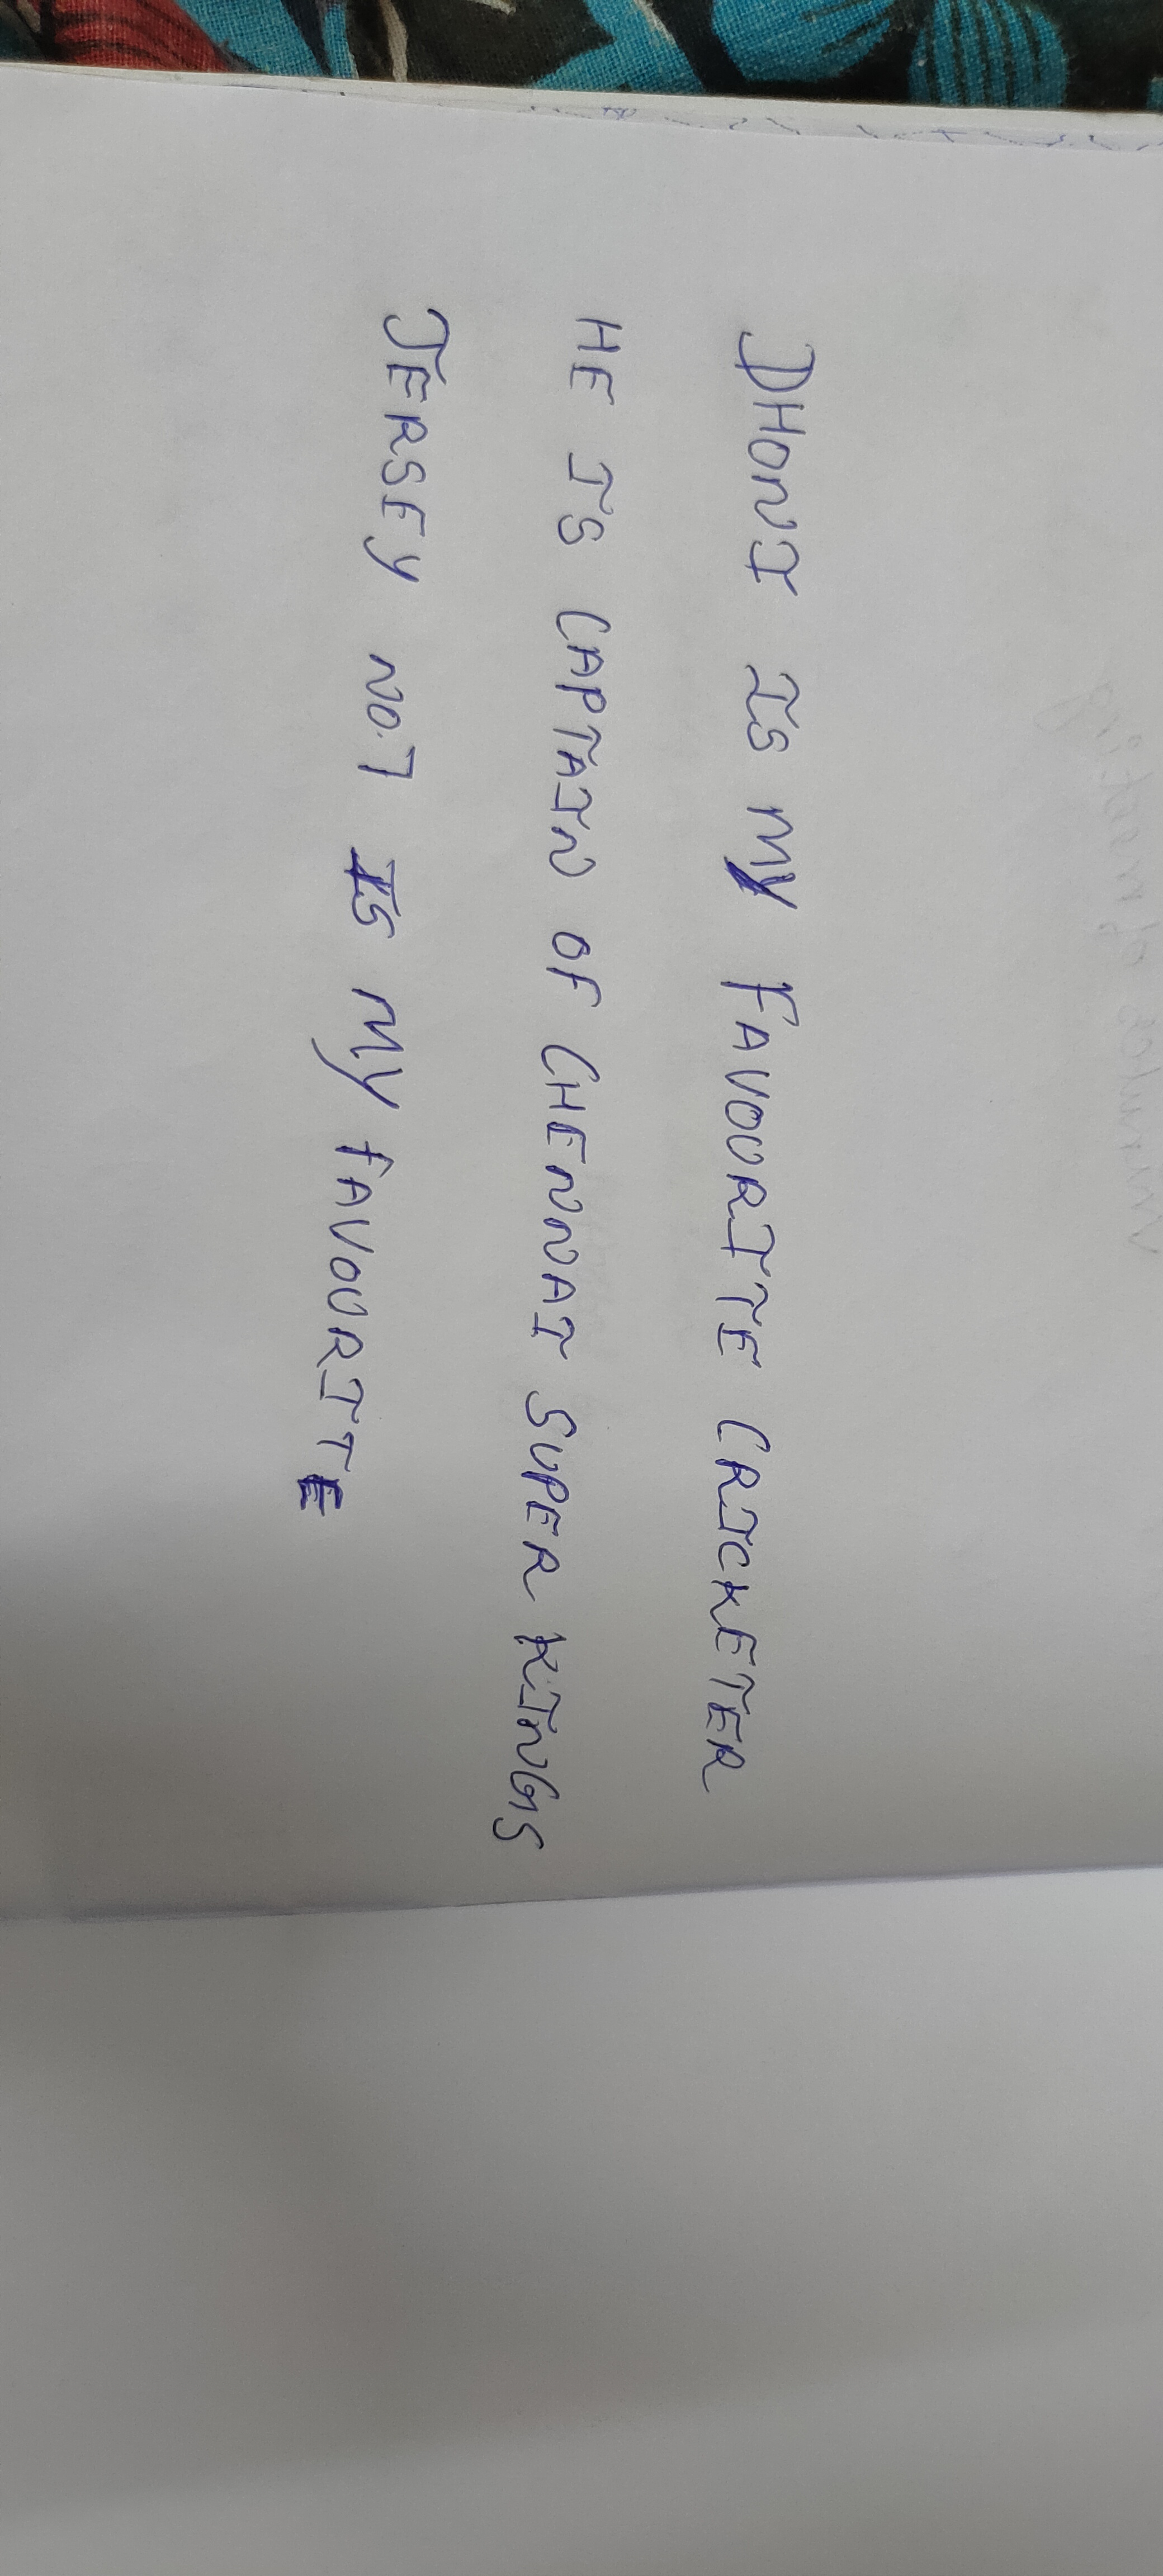 DHONI IS MY FAVOURITE CRICKETER
HE IS CAPTAIN OF CHENNAI SUPER KINGS
JERSEY NO.7 IS MY FAVOURITE